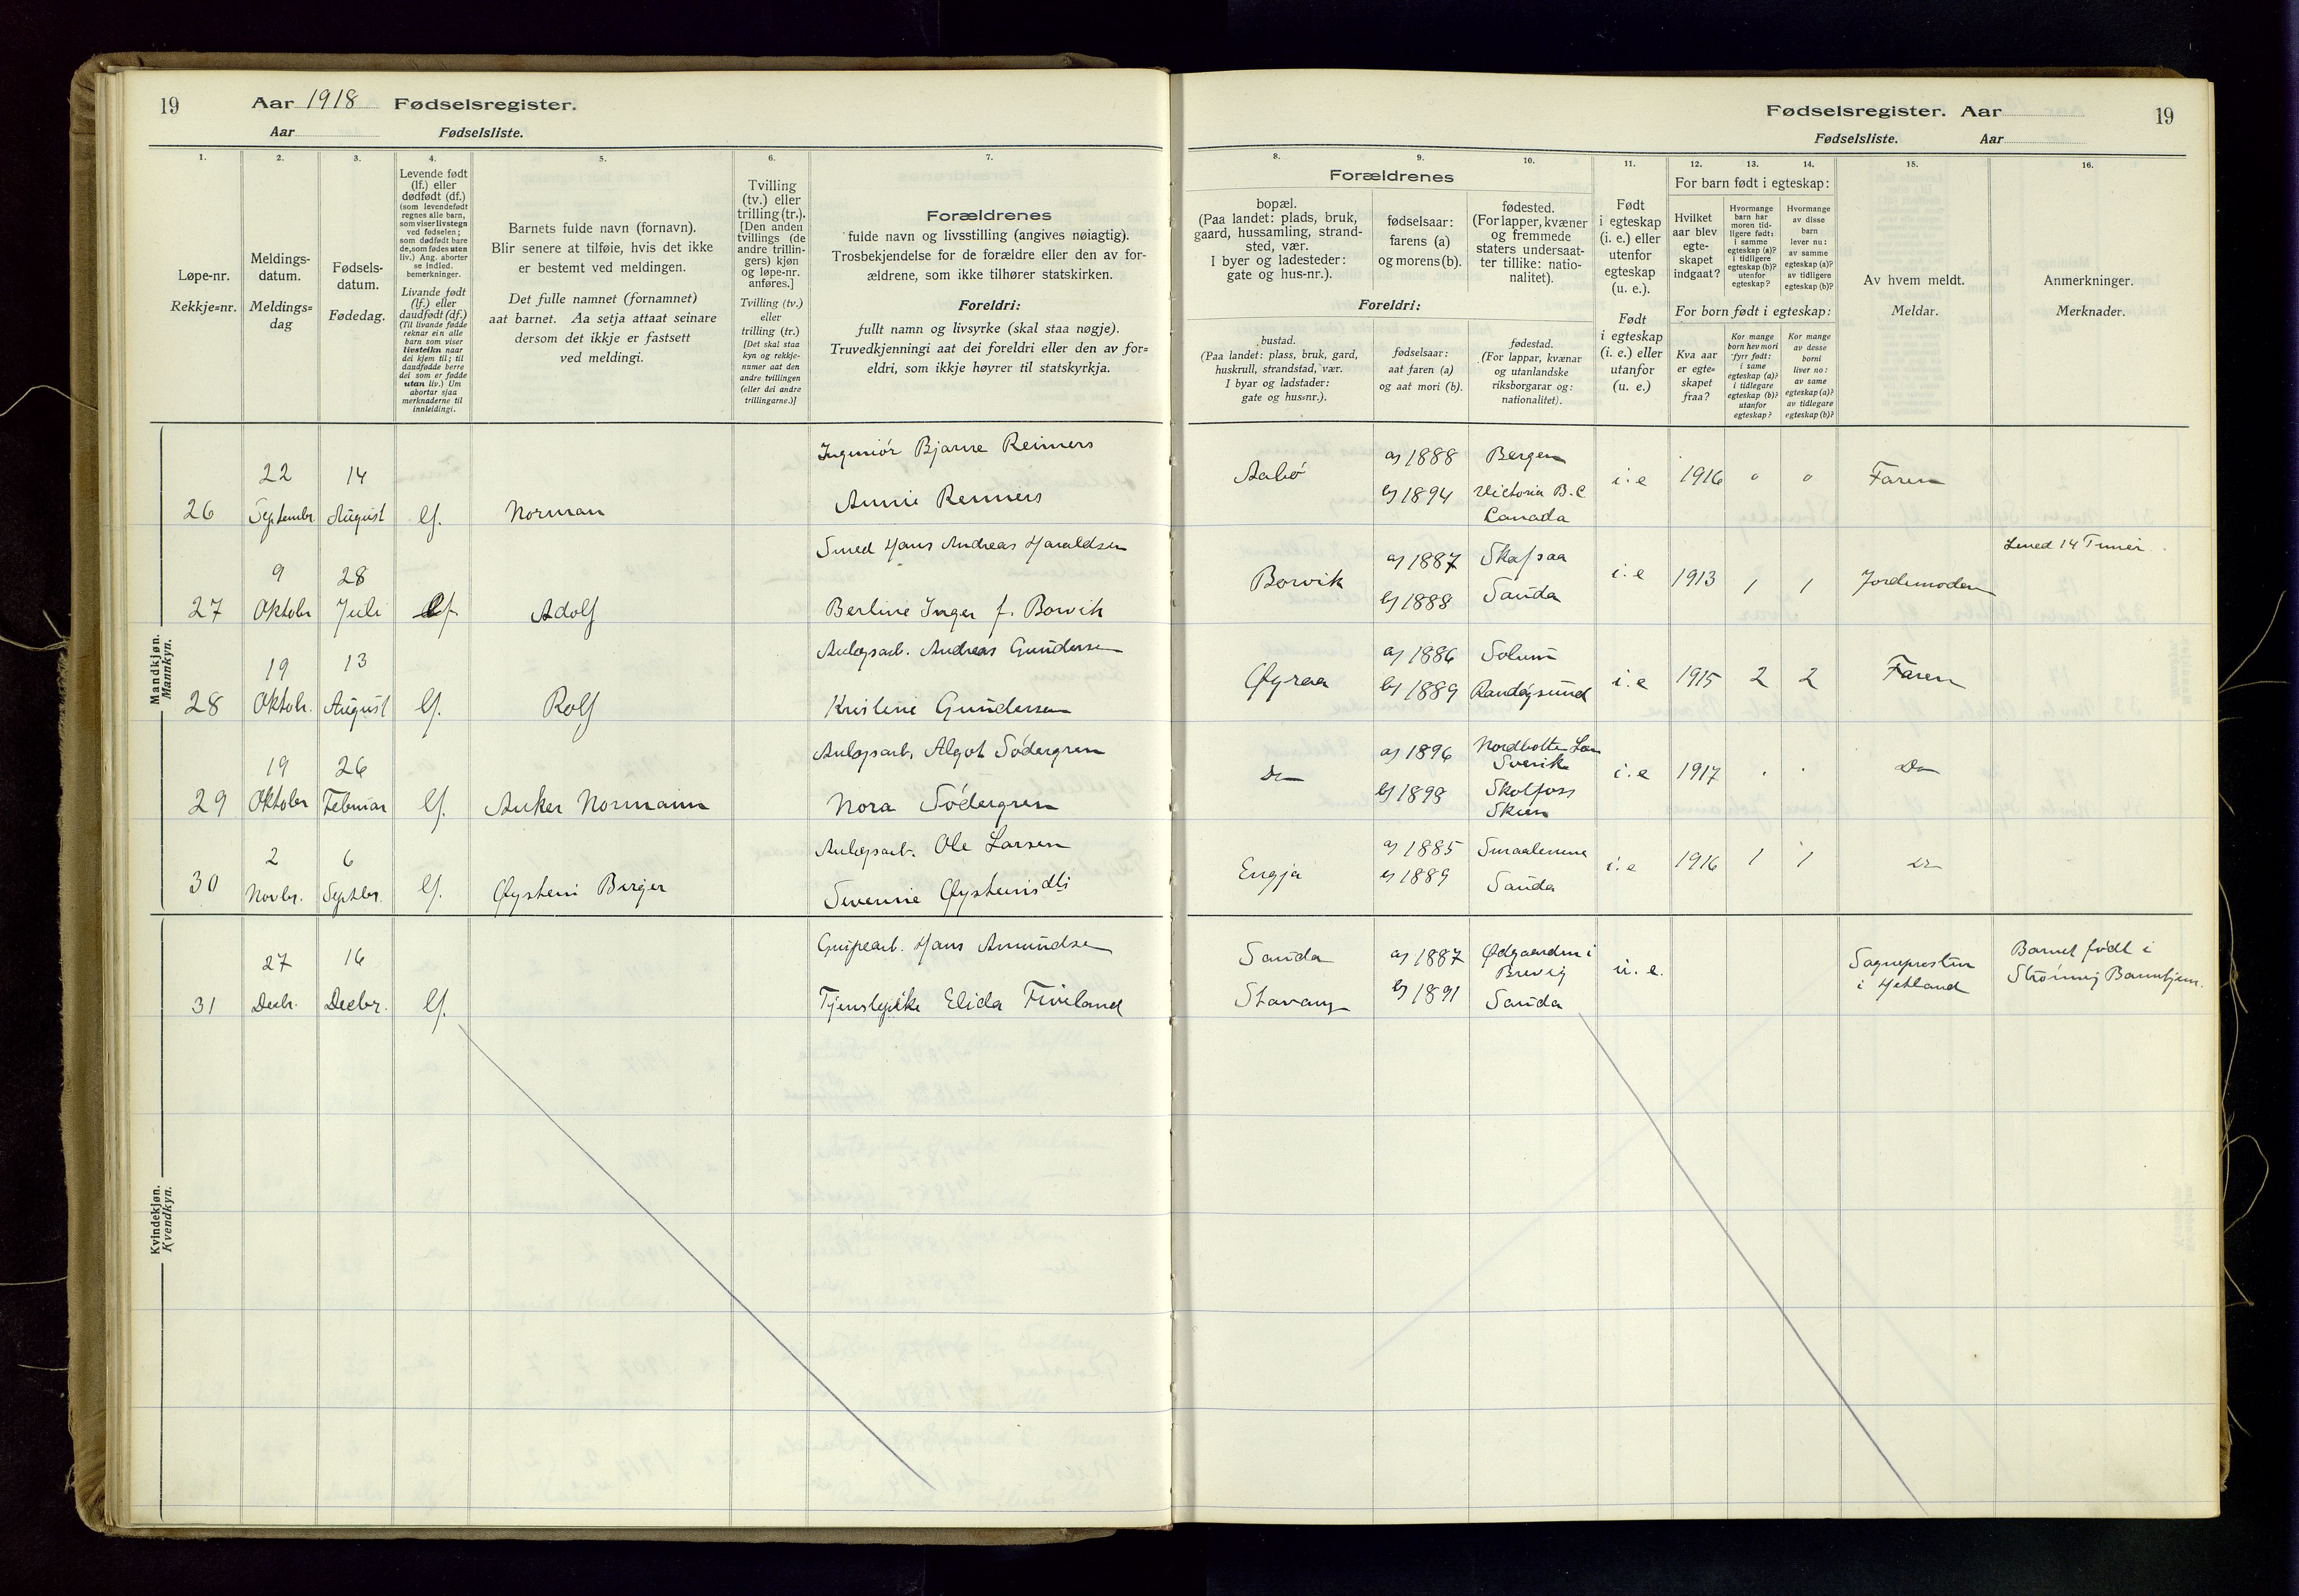 19
Aar 1918 Fødselsregister.
Aar Fødselsliste.
1.
Løpe-nr.
Rekkje=nr.
2.
Meldings-
datum.
Meldings=
dag
3.
Fødsels-
datum.
Fødedag.
4.
Levende født
(lf.) eller
dødfødt (df.)
(som levendefødt
regnes alle barn,
som viser livstegn
ved fødselen;
som dødfødt bare
de, som fødes uten
liv.) Ang. aborter
se indled.
bemerkninger.
Livande født
(lf.) eller
daudfødt (df.)
(Til livande fødde
reknar ein alle
barn som viser
livsteikn naar
dei kjem til; til
daudfødde berre
dei som er fødde
utan liv.) Um
abortar sjaa
merknaderne til
innleidingi.
5.
Barnets fulde navn (fornavn).
Blir senere at tilføie, hvis det ikke
er bestemt ved meldingen.
Det fulle namnet (fornamnet)
aat barnet. Aa setja attaat seinare
dersom det ikkje er fastsett
ved meldingi.
6.
Tvilling
(tv.) eller
trilling (tr.).
[Den anden
tvillings (de
andre trillin-
gers) kjøn
og løpe-nr.
anføres.]
Tvilling (tv.)
eller
trilling (tr.)
[Det skal staa
kyn og rekkje-
numer aat den
andre tvillingen
(eller dei andre
trillingarne.)]
7.
Forældrenes
fulde navn og livsstilling (angives nøiagtig).
Trosbekjendelse for de forældre eller den av for-
ældrene, som ikke tilhører statskirken.
Foreldri:
fullt namn og livsyrke (skal staa nøgje).
Truvedkjenningi aat dei foreldri eller den av for=
eldri, som ikkje høyrer til statskyrkja.
Mandkjøn.
Mannkyn.
26
22
Septembr.
14
August
lf.
Norman
Ingeniør Bjarne Reimers
Annie Reimers
27
9
Oktobr
28
Juli
lf
Adolf
Smed Hans Andreas Haraldsen
Berline Inger f. Borvik
28
19
Oktobr.
13
August
lf.
Rolf
Anlægsarb. Andreas Gundersen
Kristine Gundersen
29
19
Oktobr
26
Februar
lf.
Anker Normann
Anlægsarb. Algot Södergren
Nora Södergren
30
2
Novbr.
6
Septbr.
lf.
Øystein Birger
Anlægsarb. Ole Larsen
Severine Øysteinsdtr
Kvindekjøn.
Kvendkyn.
31
27
Decbr.
16
Decbr.
lf.
Hans Amundsen
Tjenestepike Elida Fiveland
Fødselsregister. Aar
19
Fødselsliste. Aar
Forældrenes
8.
bopæl.
(Paa landet: plads, bruk,
gaard, hussamling, strand-
sted, vær.
I byer og ladesteder:
gate og hus-nr.).
9.
fødselsaar:
farens (a)
og morens (b).
10.
fødested.
(For lapper, kvæner
og fremmede
staters undersaat-
ter tillike: natio-
nalitet).
Foreldri:
bustad.
(Paa landet: plass, bruk, gard,
huskrull, strandstad, vær.
I byar og ladstader:
gate og hus=nr.).
fødselsaar:
aat faren (a)
og aat mori (b).
fødestad.
(For lappar, kvænar
og utanlandske
riksborgarar og:
nationalitet).
11.
Født
i egteskap
(i. e.) eller
utenfor
egteskap
(u. e.).
Født
i egteskap
(i. e.) eller
utanfor
(u. e.)
12.
13.
14.
For barn født i egteskap:
Hvilket
aar blev
egte-
skapet
indgaat?
Hvormange
barn har
moren tid-
ligere født:
i samme
egteskap (a)?
i tidligere
egteskap (b)?
utenfor
egteskap?
Hvormange
av disse
barn
lever nu:
av samme
egteskap (a)?
av tidligere
egteskap (b)?
For born født i egteskap:
Kva aar
er egte=
skapet
fraa?
Kor mange
born hev mori
fyrr født:
i same
egteskap (a)?
i tidlegare
egteskap (b)?
utanfor
egteskap?
Kor mange
av desse
borni
liver no:
av same
egteskap (a)?
av tidlegare
egteskap (b)?
15.
Av hvem meldt.
Meldar.
16.
Anmerkninger.
Merknader.
Aabö
a) 1888
b) 1894
Bergen
Victoria B.C
Canada
i. e
1916
0
0
Faren
Borvik
a) 1887
b) 1888
Sauda
i. e
1913
1
1
Jordemoder
a) 1886
b) 1889
Solum
Randøysund
i. e
1915
2
2
Faren
Do
a) 1896
b) 1898
Sverike
Skotfoss
Skien
i. e
1917
Do
Engja
a) 1885
b) 1889
Smaalenene
Sauda
i. e
1916
1
1
Do
Sauda
Stavang
a) 1887
b) 1891
Brevig
Sauda
u. e.
Sognepresten
i Hetland
Barnet født i
Strømvig Barnehjem.